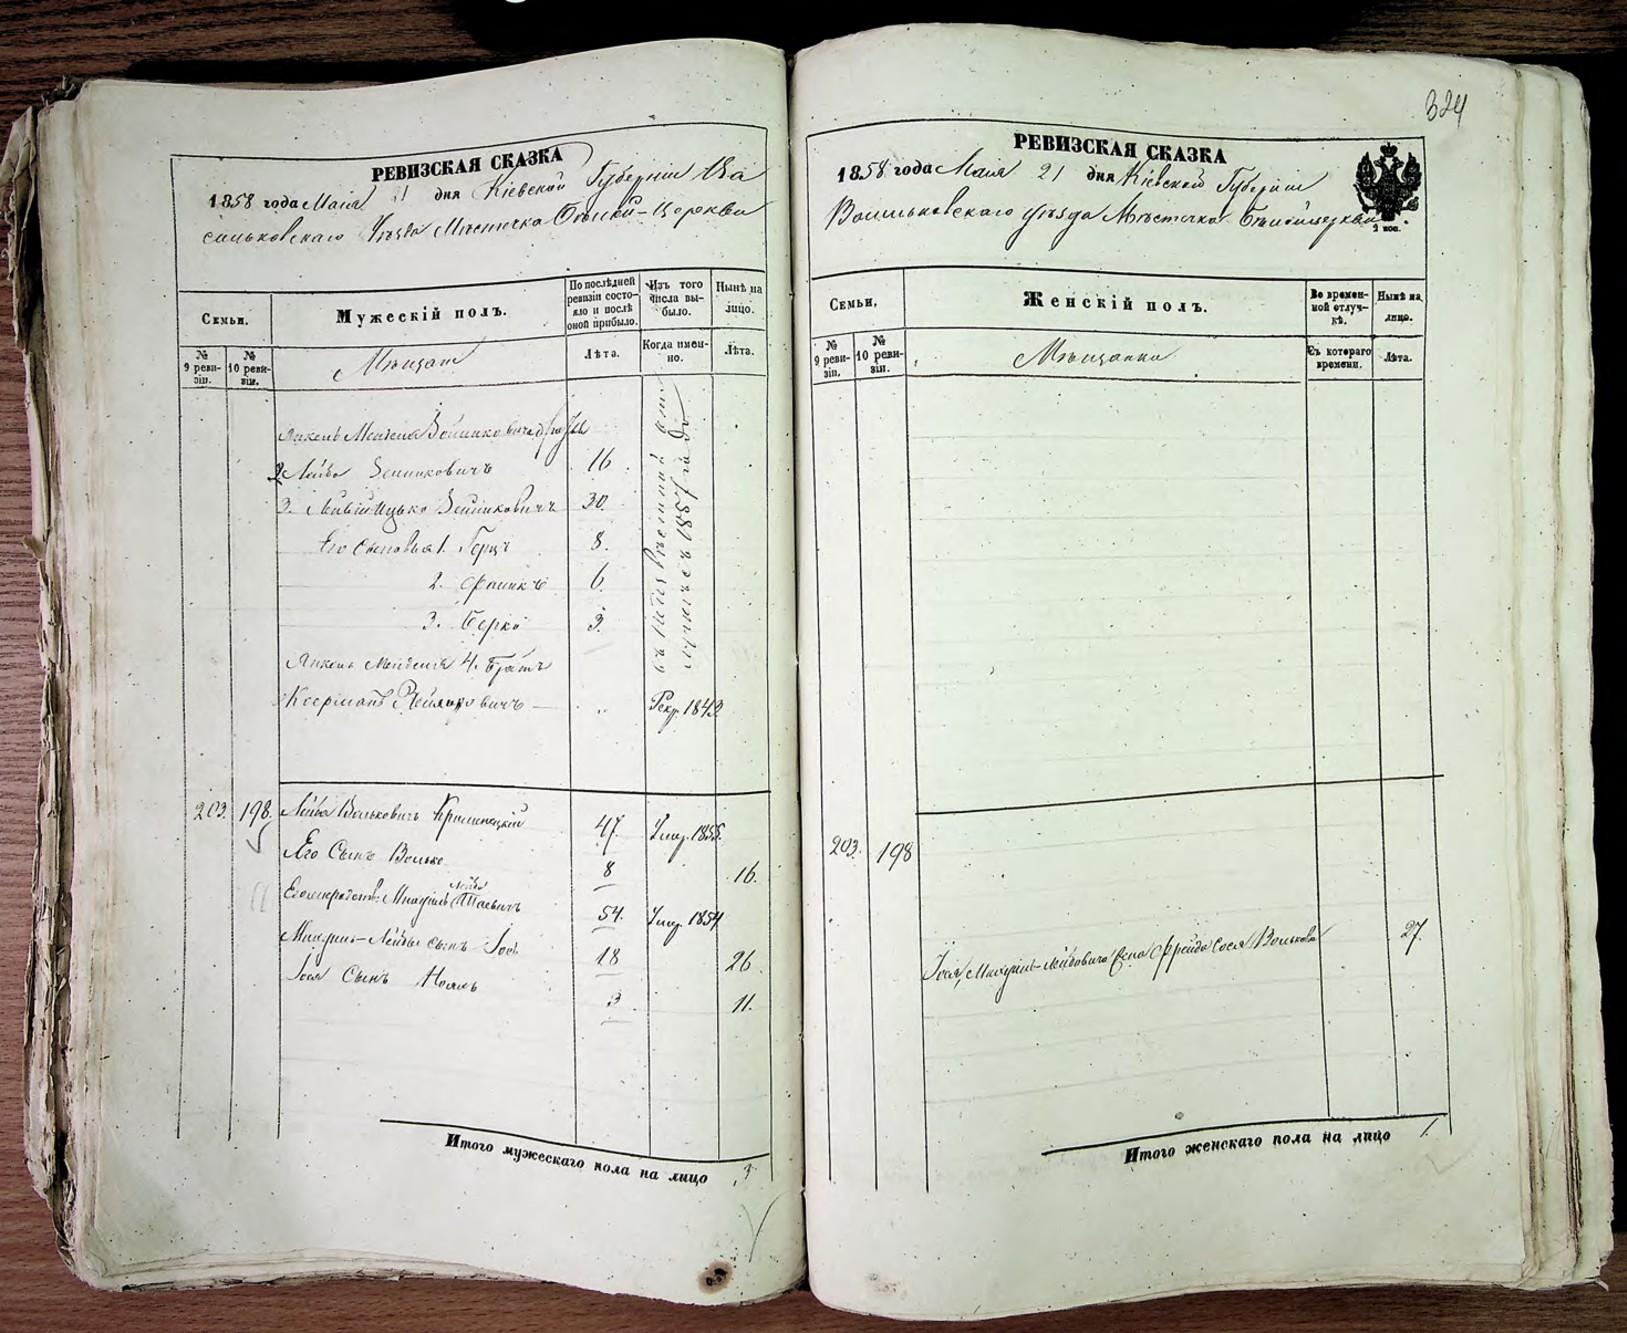 РЕВИЗСКАЯ СКАЗКА
1858 года Маія 21 дня Кіевской Губерніи Ва
сильковскаго Уѣзда Мѣстечка Бѣлой-Церкви
Семьи.
Мужескій полъ.
По послѣдней ревизіи состояло и послѣ оной прибыло.
Изъ того числа выбыло.
Нынѣ на лицо.
№ 9 ревизіи.
№ 10 ревизіи.
Мѣщане
Лѣта.
Когда именно.
Лѣта.
2. Лейба Зейликовичъ 16
3. Ицько Зейликовичъ 30.
Его Сыновья 1. Герцъ 8.
2. 6.
3. Берко 3.
въ 1857 году
4. Братъ
Рекр. 1843
203. 198. Лейба Вольковичъ 47. Умер. 1855.
Его Сынъ Волько 8 16.
Лейба 54. Умер. 1854
Лейбы сынъ Іосъ 18 26.
Іося Сынъ 3 11.
Итого мужескаго пола на лицо 3
324
РЕВИЗСКАЯ СКАЗКА
1858 года Маія 21 дня Кіевской Губерніи
Васильковскаго Уѣзда Мѣстечка Бѣлойцеркви
2 коп.
Семьи.
Женскій полъ.
Во временной отлучкѣ.
Нынѣ на лицо.
№ 9 ревизіи.
№ 10 ревизіи.
Мѣщанки
Съ котораго времени.
Лѣта.
203. 198
Лейбовича Жена Фрейда Сося Волькова 27.
Итого женскаго пола на лицо 1.